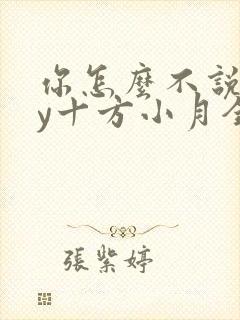 你怎麼不說
y十方小月全
張紫婷